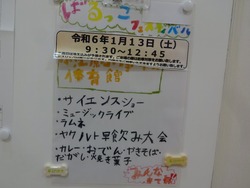 ぱるっこ
フェスティバル
令和6年1月13日（土）
9：30～12：45
体育館
・サイエンスショー
・ミュージックライブ
・ラムネ
・ヤクルト早飲み大会
・カレー・おでん・やきそば・
だがし・焼き菓子
みんな
来てね